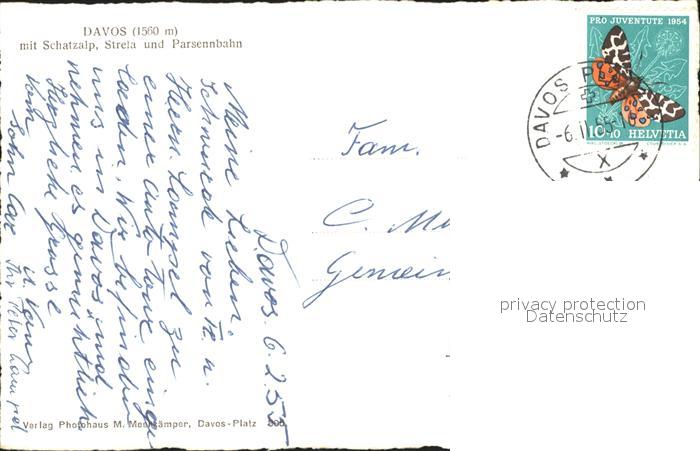 DAVOS (1560 m)
mit Schatzalp, Strela und Parsennbahn
Davos. 6. 2. 55
Meine Lieben.
Schmuck von Te. u.
Herrn Lampel zu
einer Auto Tour einge
laden. Wir befinden
uns in Davos, und
nehmen es gemühtlich
Herzliche Grüsse
vom Sohn
Ihr Peter Lampel
Fam.
C. M
Gemein
PRO JUVENTUTE 1954
10+10 HELVETIA
DAVOS PL
-6.II.55
X
privacy protection
Datenschutz
Verlag Photohaus M. Meerkämper, Davos-Platz